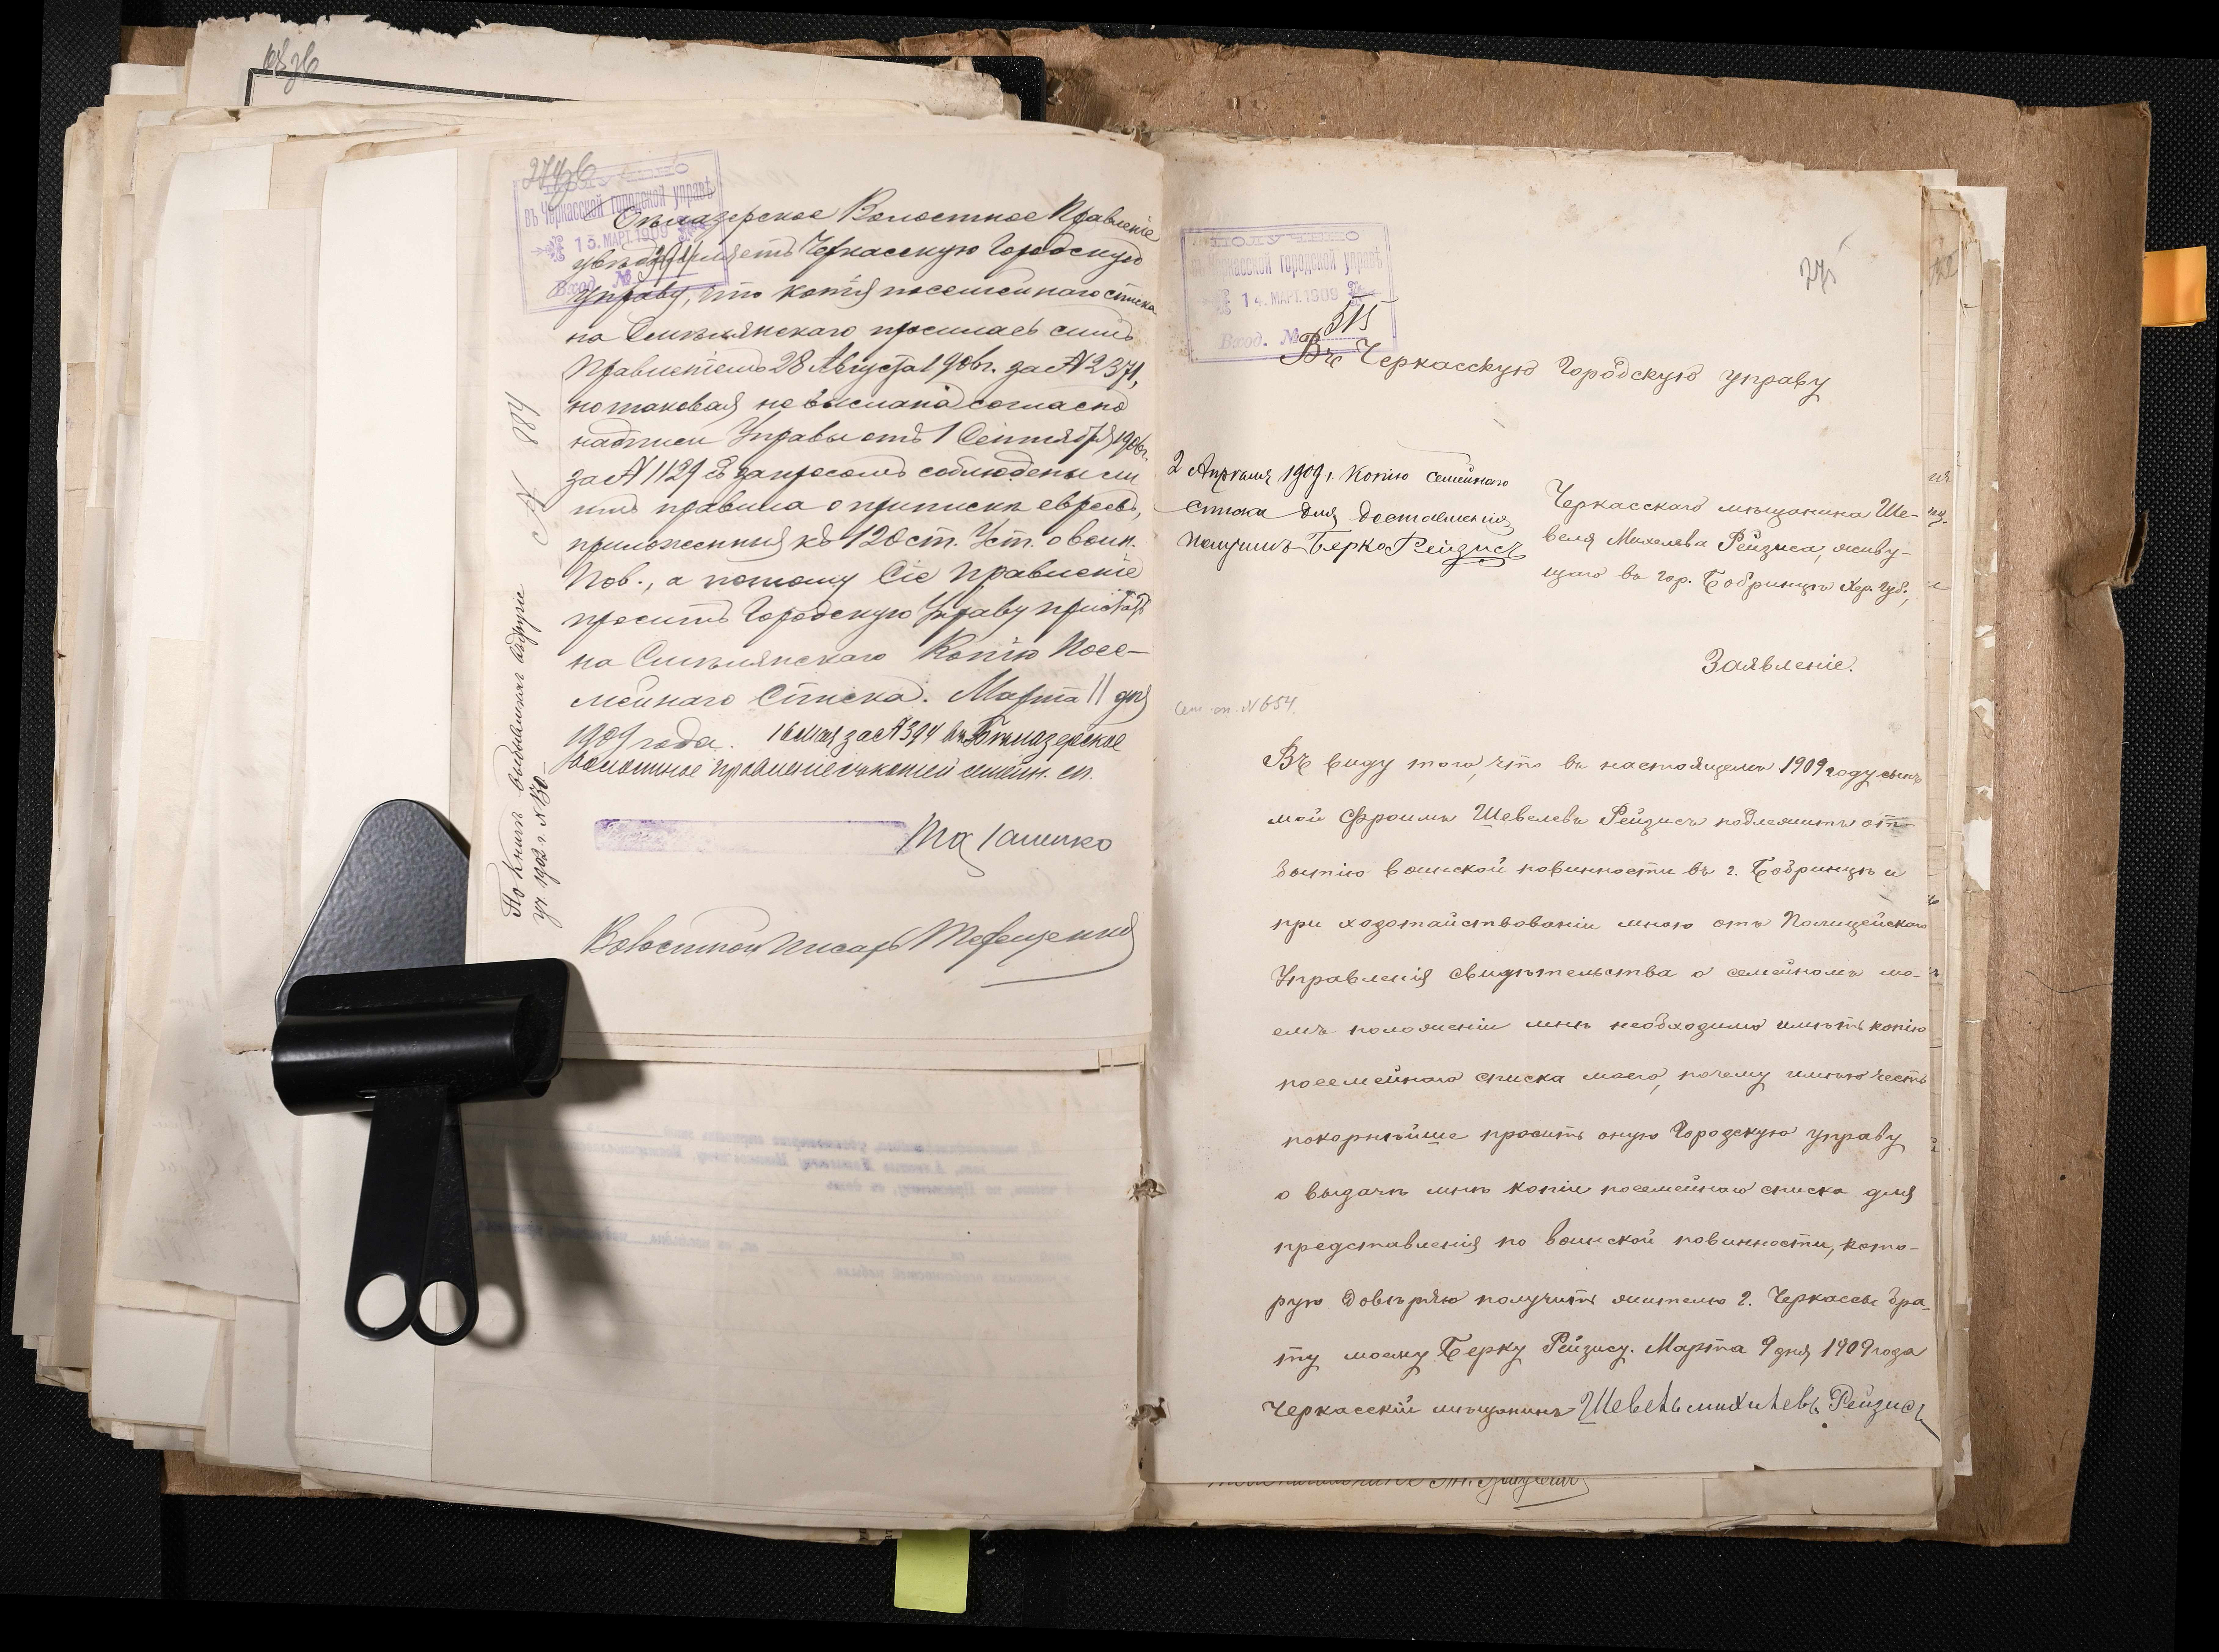 274 об
ПОЛУЧЕНО
въ Черкасской городской управѣ
13. МАРТ. 1909
Вход. №
Бѣлозерское Волостное Правленіе
увѣдомляетъ Черкасскую Городскую
Управу, что копія посемейнаго списка
на Смѣлянскаго просилась симъ
Правленіемъ 28 Августа 1906 г. за № 2371,
но таковая не выслана согласно
надписи Управы отъ 1 Сентября 1906 г.
за № 1129 съ запросомъ соблюдены ли
правила о припискѣ евреевъ,
приложенныя къ 120 ст. Уст. о воин.
Пов., а потому Сіе Правленіе
проситъ Городскую Управу прислать
на Смѣлянскаго Копію Посе-
мейнаго Списка. Марта 11 дня
1909 года. 16 мая за № 394 въ Бѣлозерское
волостное правленіе съ копией семейн. сп.
Волостной Писарь Терещенко
По книгѣ
1902 г.
275
ПОЛУЧЕНО
въ Черкасской городской управѣ
14. МАРТ. 1909
Вход. № 515
Въ Черкасскую Городскую управу
2 Апрѣля 1909 г. Копію семейнаго
списка для доставленія
получилъ Берко Рейзисъ
Черкасскаго мѣщанина Ше-
веля Михелева Рейзиса, живу-
щаго въ гор. Бобринцѣ Хер. губ.,
Заявленіе.
Сем. сп. № 654.
Въ виду того, что въ настоящемъ 1909 году сынъ
мой Фроимъ Шевелевъ Рейзисъ подлежитъ от-
бытію воинской повинности въ г. Бобринцѣ и
при ходотайствованіи мною отъ Полицейскаго
Управленія свидѣтельства о семейномъ мо-
емъ положеніи мнѣ необходимо имѣть копію
посемейнаго списка моего, почему имѣю честь
покорнѣйше просить оную Городскую управу
о выдачѣ мнѣ копіи посемейнаго списка для
представленія по воинской повинности, кото-
рую довѣряю получить жителю г. Черкассы бра-
ту моему Берку Рейзису. Марта 9 дня 1909 года
Черкасскій мѣщанинъ Шевель михилевъ Рейзисъ